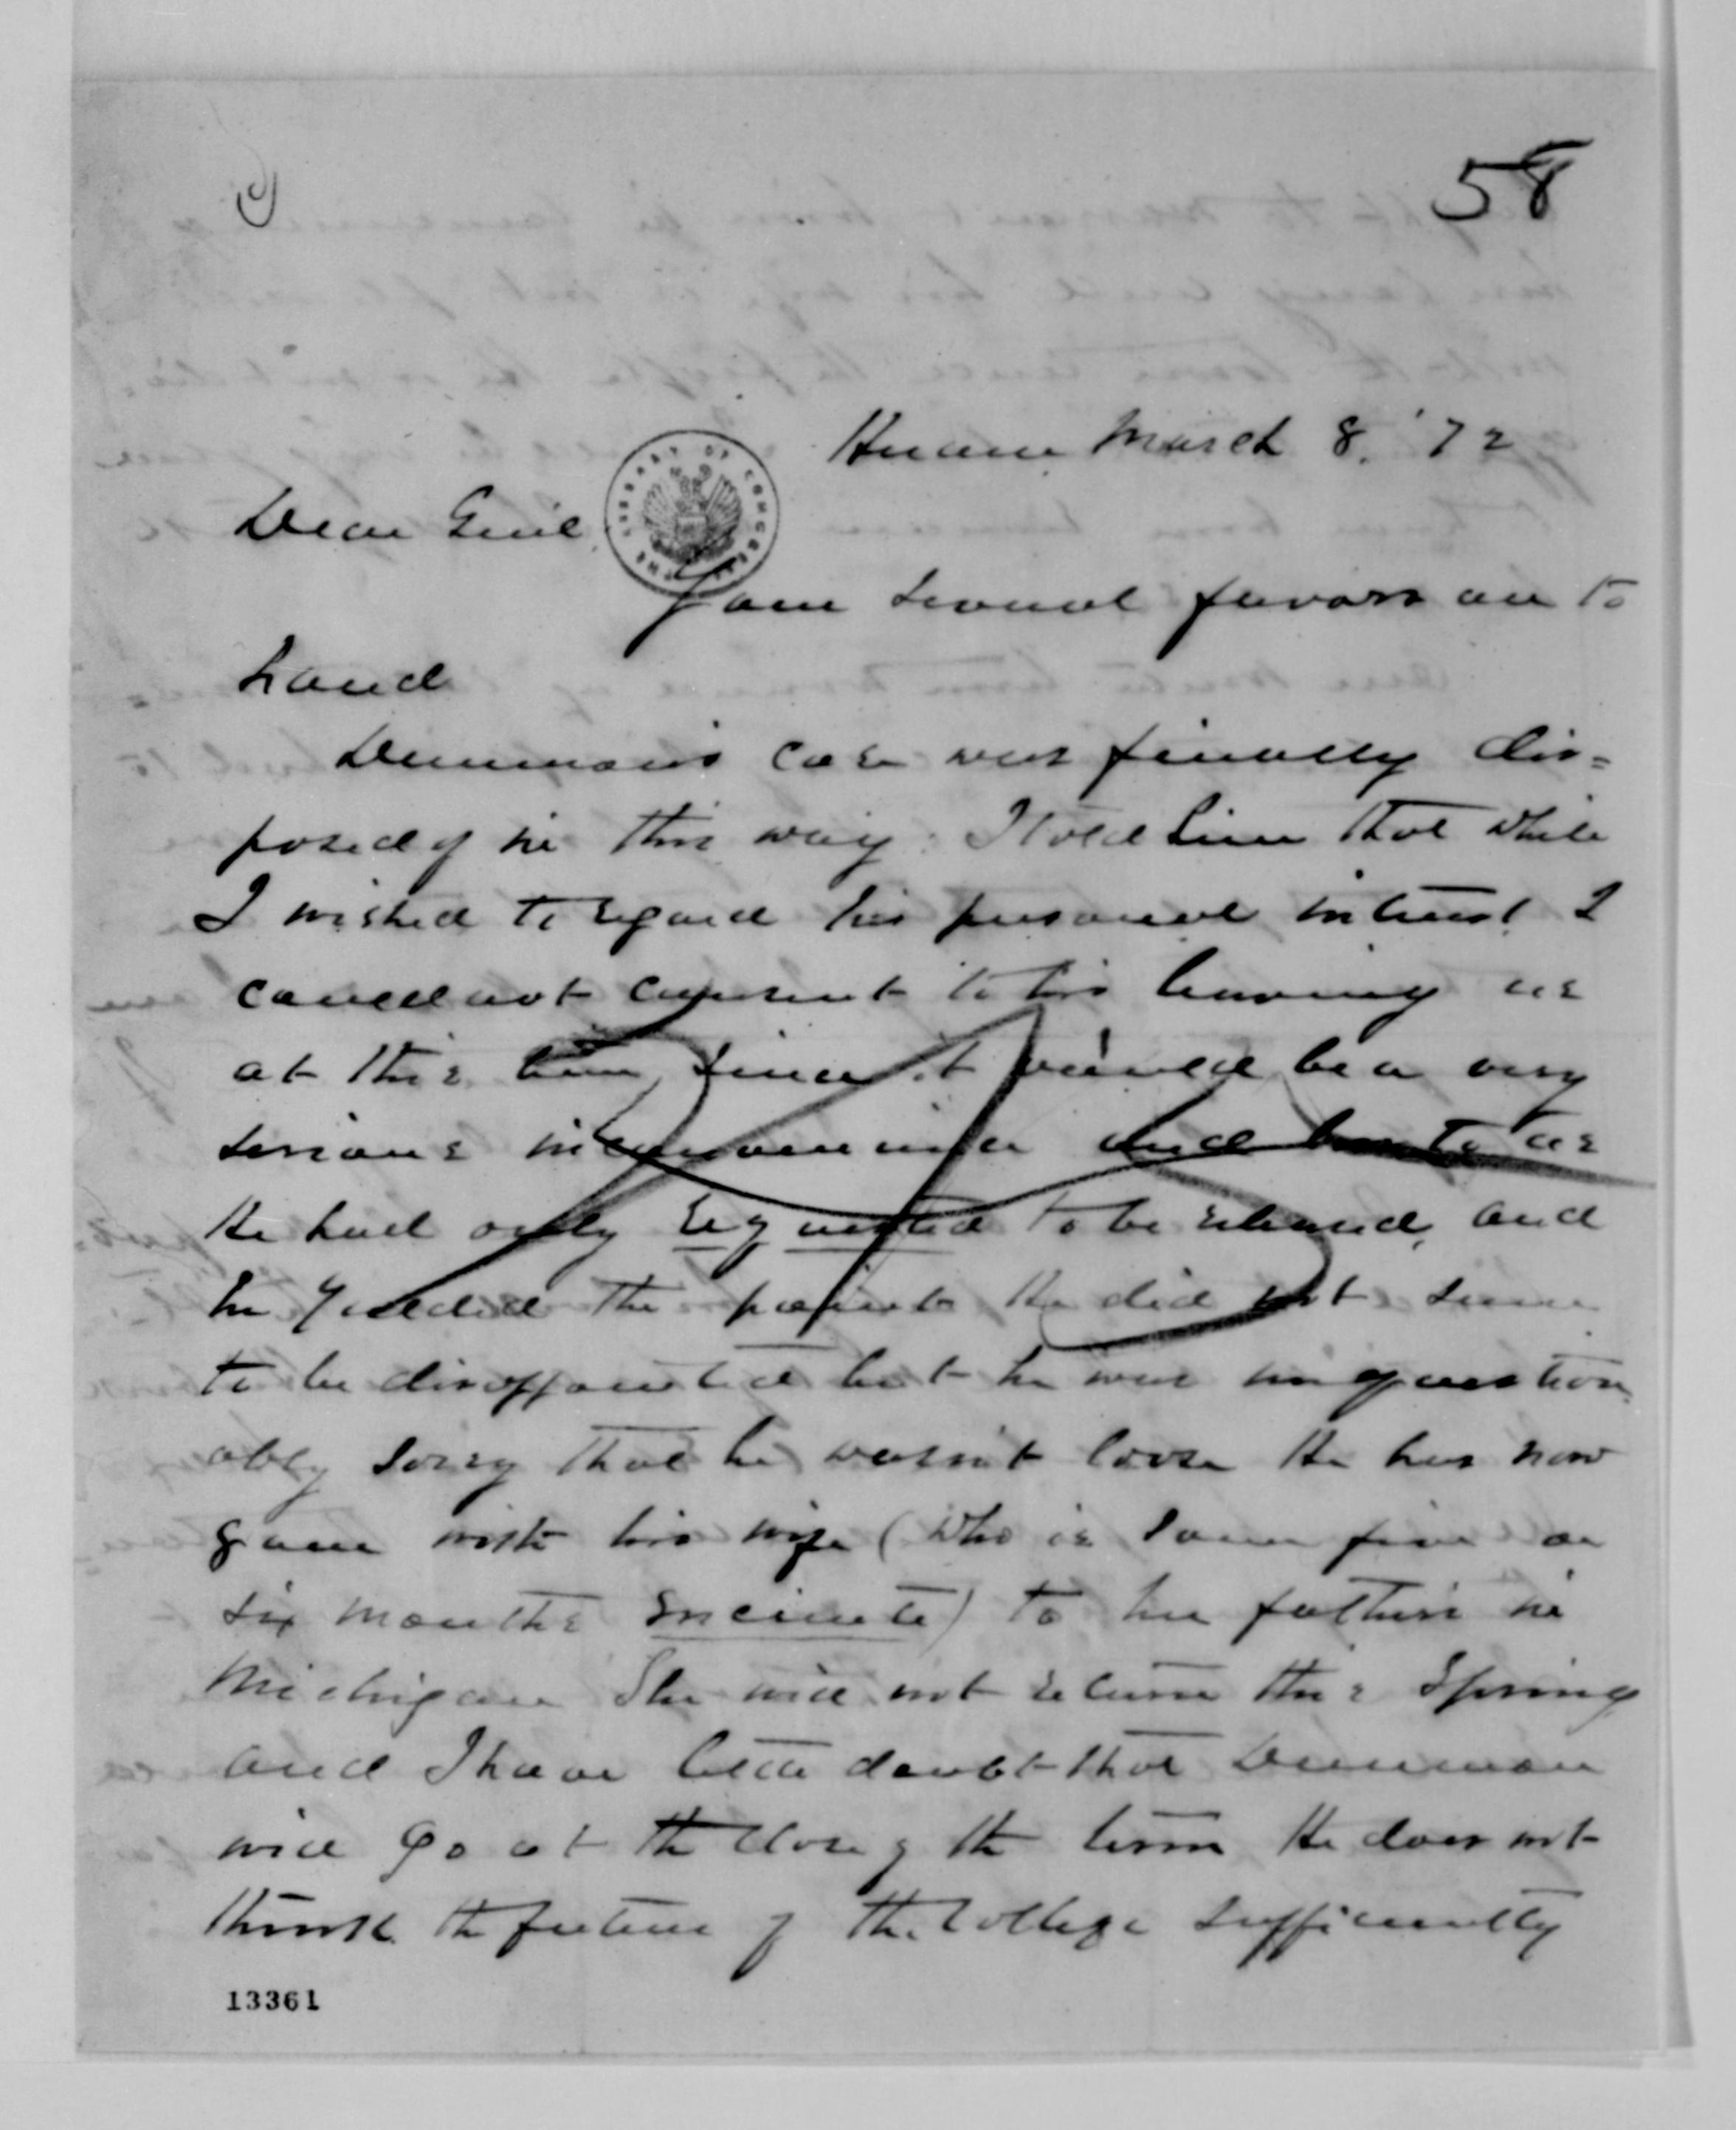 58
Hiram March 8. '72
Dear Genl.
THE LIBRARY OF CONGRESS
Your several favors are to
hand
case was finally dis=
posed of in this way: I told him that while
I wished to regard his personal interest I
could not consent to his leaving us
at this time, since it would be a very
serious inconvenience and to us
He had only requested to be released, and
he yielded the point He did not seem
to be disappointed but he was unquestion
ably sorry that he wasn't loose He has now
gone with his wife (who is some five or
six months enciente) to her father's in
Michigan She will not return this Spring
and I have little doubt that
will go at the close of the term He does not
think the future of the College sufficiently
13361